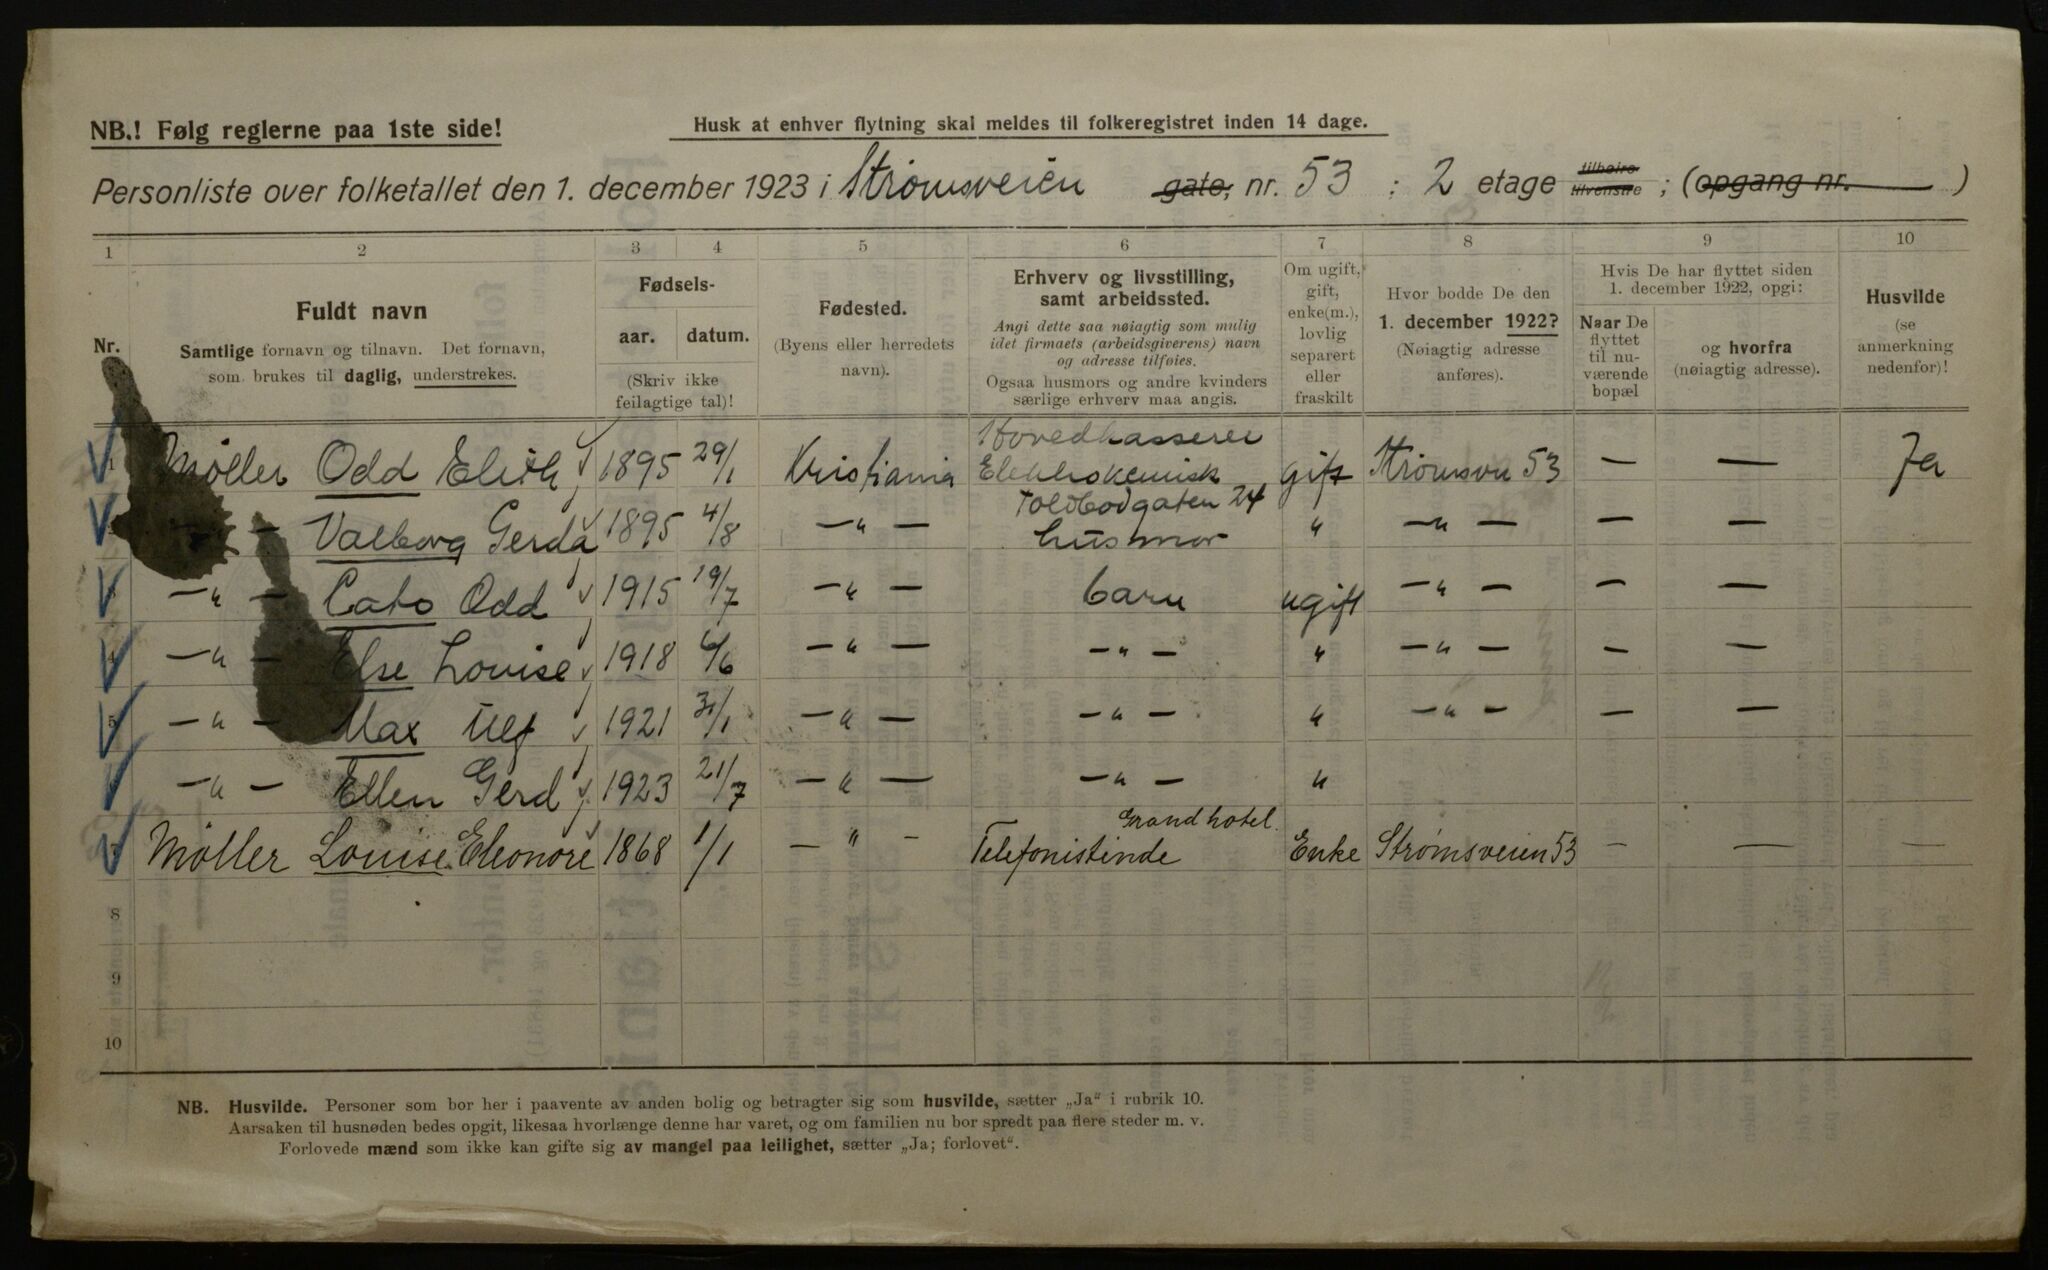 NB.! Følg reglerne paa 1ste side!
Husk at enhver flytning skal meldes til folkeregistret inden 14 dage.
Personliste over folketallet den 1. december 1923 i Strømsveien gate, nr. 53 ; 2 etage tilhøire tilvenstre ; (opgang nr. )
1 2 3 4 5 6 7 8 9 10
Nr.
Fuldt navn
Samtlige fornavn og tilnavn. Det fornavn,
som brukes til daglig, understrekes.
Fødsels-
aar. datum.
(Skriv ikke
feilagtige tal)!
Fødested.
(Byens eller herredets
navn).
Erhverv og livsstilling,
samt arbeidssted.
Angi dette saa nøiagtig som mulig
idet firmaets (arbeidsgiverens) navn
og adresse tilføies.
Ogsaa husmors og andre kvinders
særlige erhverv maa angis.
Om ugift,
gift,
enke(m.),
lovlig
separert
eller
fraskilt
Hvor bodde De den
1. december 1922?
(Nøiagtig adresse
anføres).
Hvis De har flyttet siden
1. december 1922, opgi:
Naar De
flyttet
til nu-
værende
bopæl
og hvorfra
(nøiagtig adresse).
Husvilde
(se
anmerkning
nedenfor)!
1 Møller Odd Elith 1895 29/1 Kristiania Hovedkasserer Elektrokemisk Toldbodgaten 24 gift Strømsvn 53 — — Ja
— Valborg Gerda 1895 4/8 —„— husmor „ —„— — —
—„— Cato Odd 1915 19/7 —„— barn ugift —„— — —
4 —„— Else Louise 1918 6/6 —„— —„— „ —„— — —
5 —„— Max Ulf 1921 31/1 —„— —„— „ —„— — —
—„— Ellen Gerd 1923 21/7 —„— —„— „
7 Møller Louise Eleonore 1868 1/1 —„— Telefonistinde Grand hotel. Enke Strømsveien 53 — — —
8
9
10
NB. Husvilde. Personer som bor her i paavente av anden bolig og betragter sig som husvilde, sætter „Ja“ i rubrik 10.
Aarsaken til husnøden bedes opgit, likesaa hvorlænge denne har varet, og om familien nu bor spredt paa flere steder m. v.
Forlovede mænd som ikke kan gifte sig av mangel paa leilighet, sætter „Ja; forlovet“.